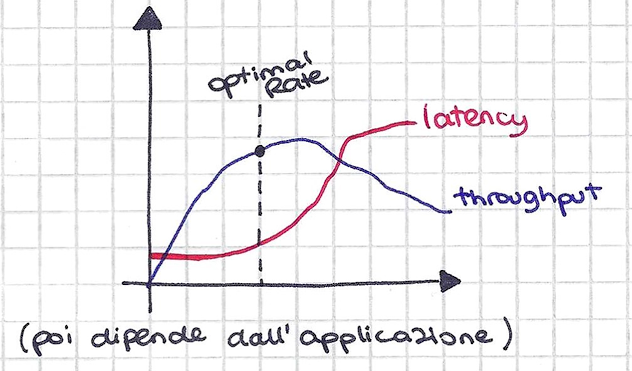 optimal
Rate
latency
throughput
(poi dipende dall'applicazione)